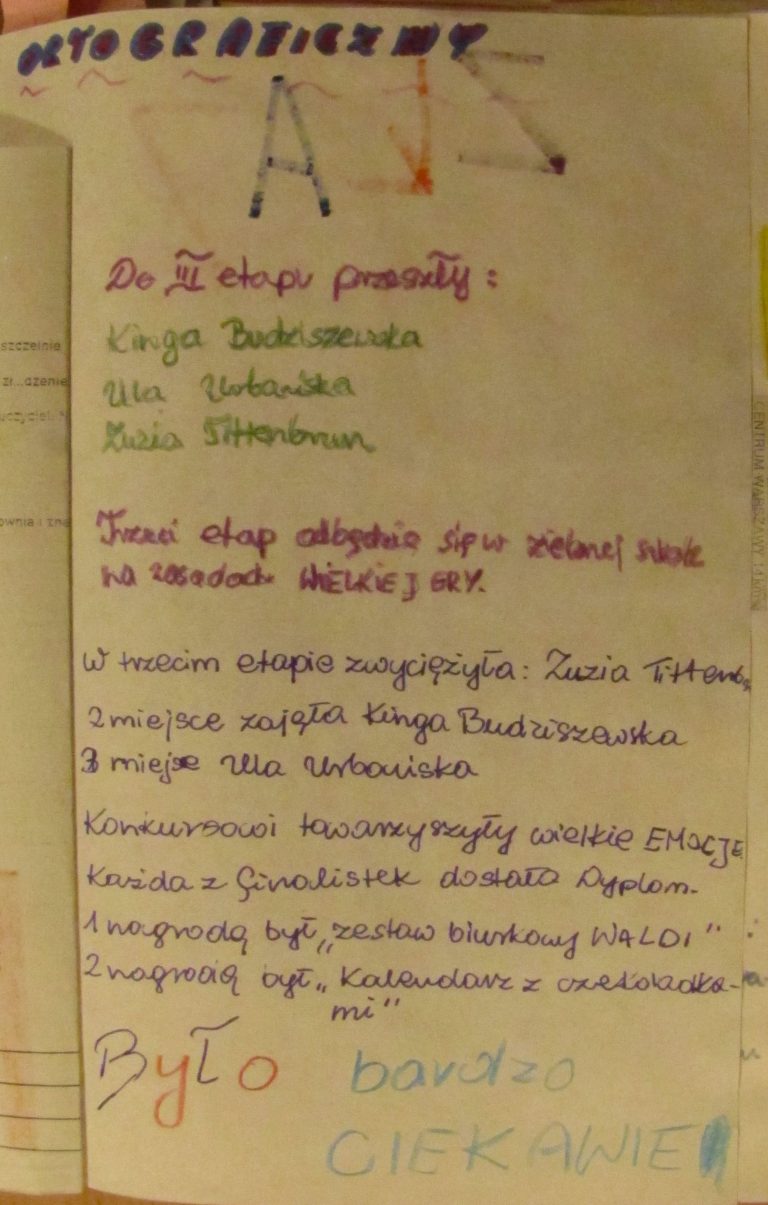 ORTOGRAFICZNY
AS
Do III etapu przeszły:
Kinga Budziszewska
Ula Urbańska
Zuzia Tittenbrun
Trzeci etap odbędzie się w zielonej szkole
na zasadach WIELKIEJ GRY.
W trzecim etapie zwyciężyła: Zuzia Tittenb
2 miejsce zajęła Kinga Budziszewska
3 miejse Ula Urbańska
Konkursowi towarzyszyły wielkie EMOCJE
Każda z finalistek dostała Dyplom.
1 nagrodą był „zestaw biurkowy WALDI"
2 nagrodą był „Kalendarz z czekoladka-
mi"
Było bardzo
CIEKAWIE
szczelnie
CENTRUM WARSZAWY